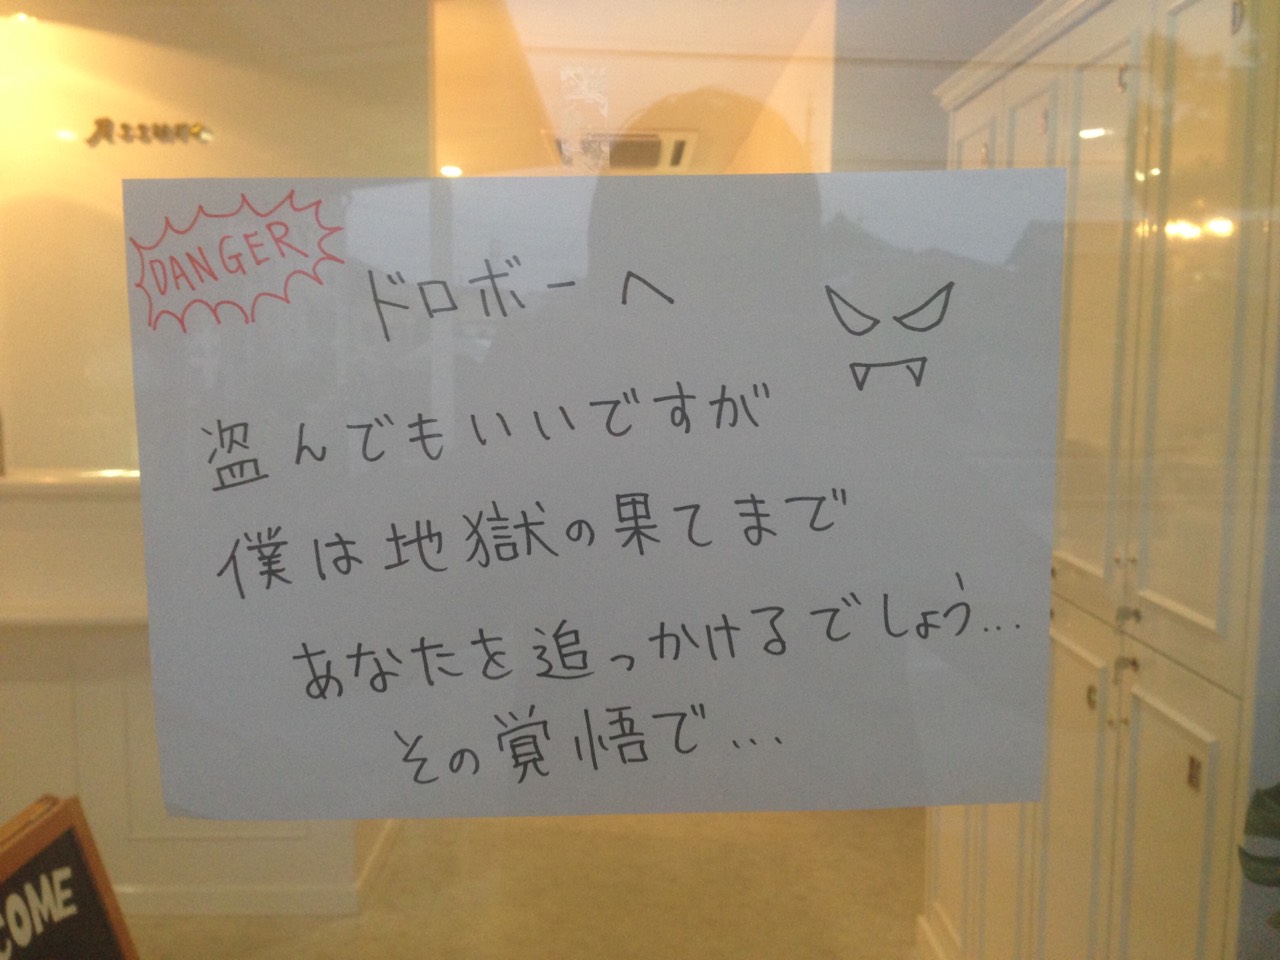 Azzurro
DANGER
ドロボーへ
盗んでもいいですが
僕は地獄の果てまで
あなたを追っかけるでしょう...
その覚悟で...
COME
D
C
C